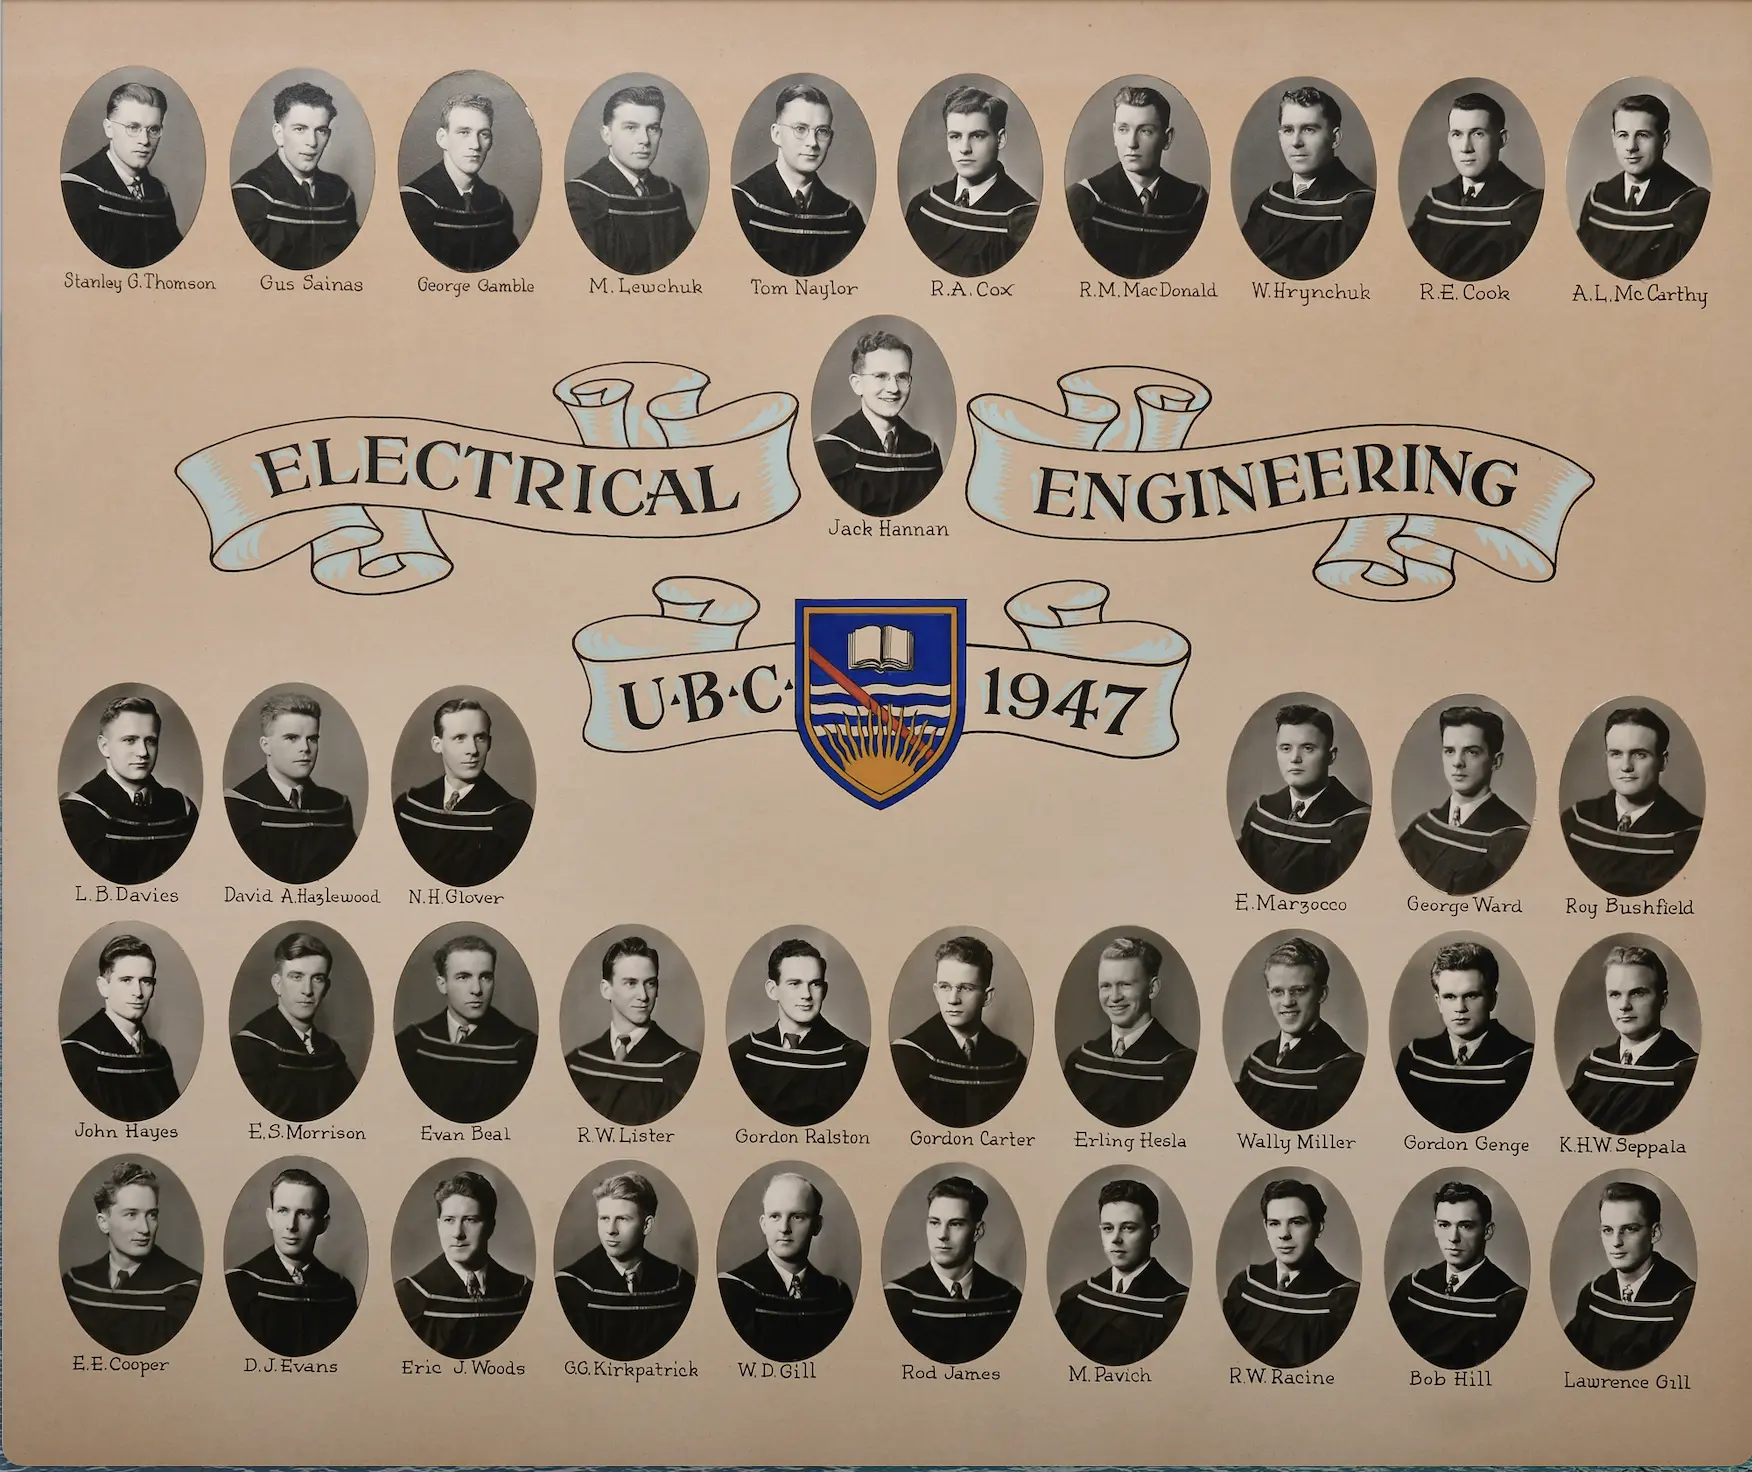 Stanley G. Thomson Gus Sainas George Gamble M. Lewchuk Tom Naylor R.A. Cox R.M. MacDonald W. Hrynchuk R.E. Cook A.L. McCarthy
ELECTRICAL ENGINEERING
Jack Hannan
U·B·C· 1947
L.B. Davies David A. Hazlewood N.H. Glover E. Marzocco George Ward Roy Bushfield
John Hayes E.S. Morrison Evan Beal R.W. Lister Gordon Ralston Gordon Carter Erling Hesla Wally Miller Gordon Genge K.H.W. Seppala
E.E. Cooper D.J. Evans Eric J. Woods G.G. Kirkpatrick W.D. Gill Rod James M. Pavich R.W. Racine Bob Hill Lawrence Gill